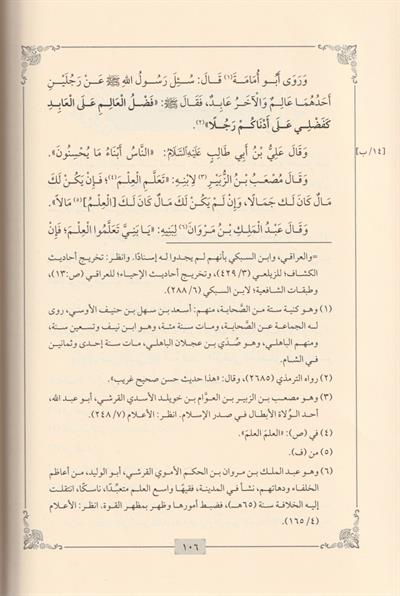 وَرَوَى أَبُو أُمَامَةَ(١) قَالَ: سُئِلَ رَسُولُ اللهِ ﷺ عَنْ رَجُلَيْنِ
أَحَدُهُمَا عَالِمٌ وَالْآخَرُ عَابِدٌ، فَقَالَ ﷺ: «فَضْلُ الْعَالِمِ عَلَى الْعَابِدِ
كَفَضْلِي عَلَى أَدْنَاكُمْ رَجُلًا»(٢).
[١٤/ب]
وَقَالَ عَلِيُّ بْنُ أَبِي طَالِبٍ عَلَيْهِ السَّلَامُ: «النَّاسُ أَبْنَاءُ مَا يُحْسِنُونَ».
وَقَالَ مُصْعَبُ بْنُ الزُّبَيْرِ(٣) لِابْنِهِ: «تَعَلَّمِ الْعِلْمَ(٤)؛ فَإِنْ يَكُنْ لَكَ
مَالٌ كَانَ لَكَ جَمَالًا، وَإِنْ لَمْ يَكُنْ لَكَ مَالٌ كَانَ لَكَ [الْعِلْمُ](٥) مَالًا».
وَقَالَ عَبْدُ الْمَلِكِ بْنُ مَرْوَانَ(٦) لِبَنِيهِ: «يَا بَنِيَّ تَعَلَّمُوا الْعِلْمَ؛ فَإِنْ
=والعراقي، وابن السبكي بأنهم لم يجدوا له إسنادًا. وانظر: تخريج أحاديث
الكشاف؛ للزيلعي (٣/ ٤٢٩)، وتخريج أحاديث الإحياء؛ للعراقي (ص:١٣)،
وطبقات الشافعية؛ لابن السبكي (٦/ ٢٨٨).
(١) وهو كنية ستة من الصَّحابة، منهم: أسعد بن سهل بن حنيف الأوسي، روى
له الجماعة عن الصَّحابة، ومات سنة مئة، وهو ابن نيف وتسعين سنة،
ومنهم الباهلي، وهو صُدَي بن عجلان الباهلي، مات سنة إحدى وثمانين
في الشام.
(٢) رواه الترمذي (٢٦٨٥)، وقال: «هذا حديث حسن صحيح غريب».
(٣) وهو مصعب بن الزبير بن العوَّام بن خويلد الأسدي القرشي، أبو عبد الله،
أحد الوُلاة الأبطال في صدر الإسلام. انظر: الأعلام (٧/ ٢٤٨).
(٤) في (ص): «العلمَ العلمَ».
(٥) من (ف).
(٦) وهو عبد الملك بن مروان بن الحكم الأموي القرشي، أبو الوليد، من أعاظم
الخلفاء ودهاتهم، نشأ في المدينة، فقيهًا واسع العلم متعبدًا، ناسكًا، انتقلت
إليه الخلافة سنة (٦٥هـ)، فضبط أمورها وظهر بمظهر القوة. انظر: الأعلام
(٤/ ١٦٥).
١٠٦